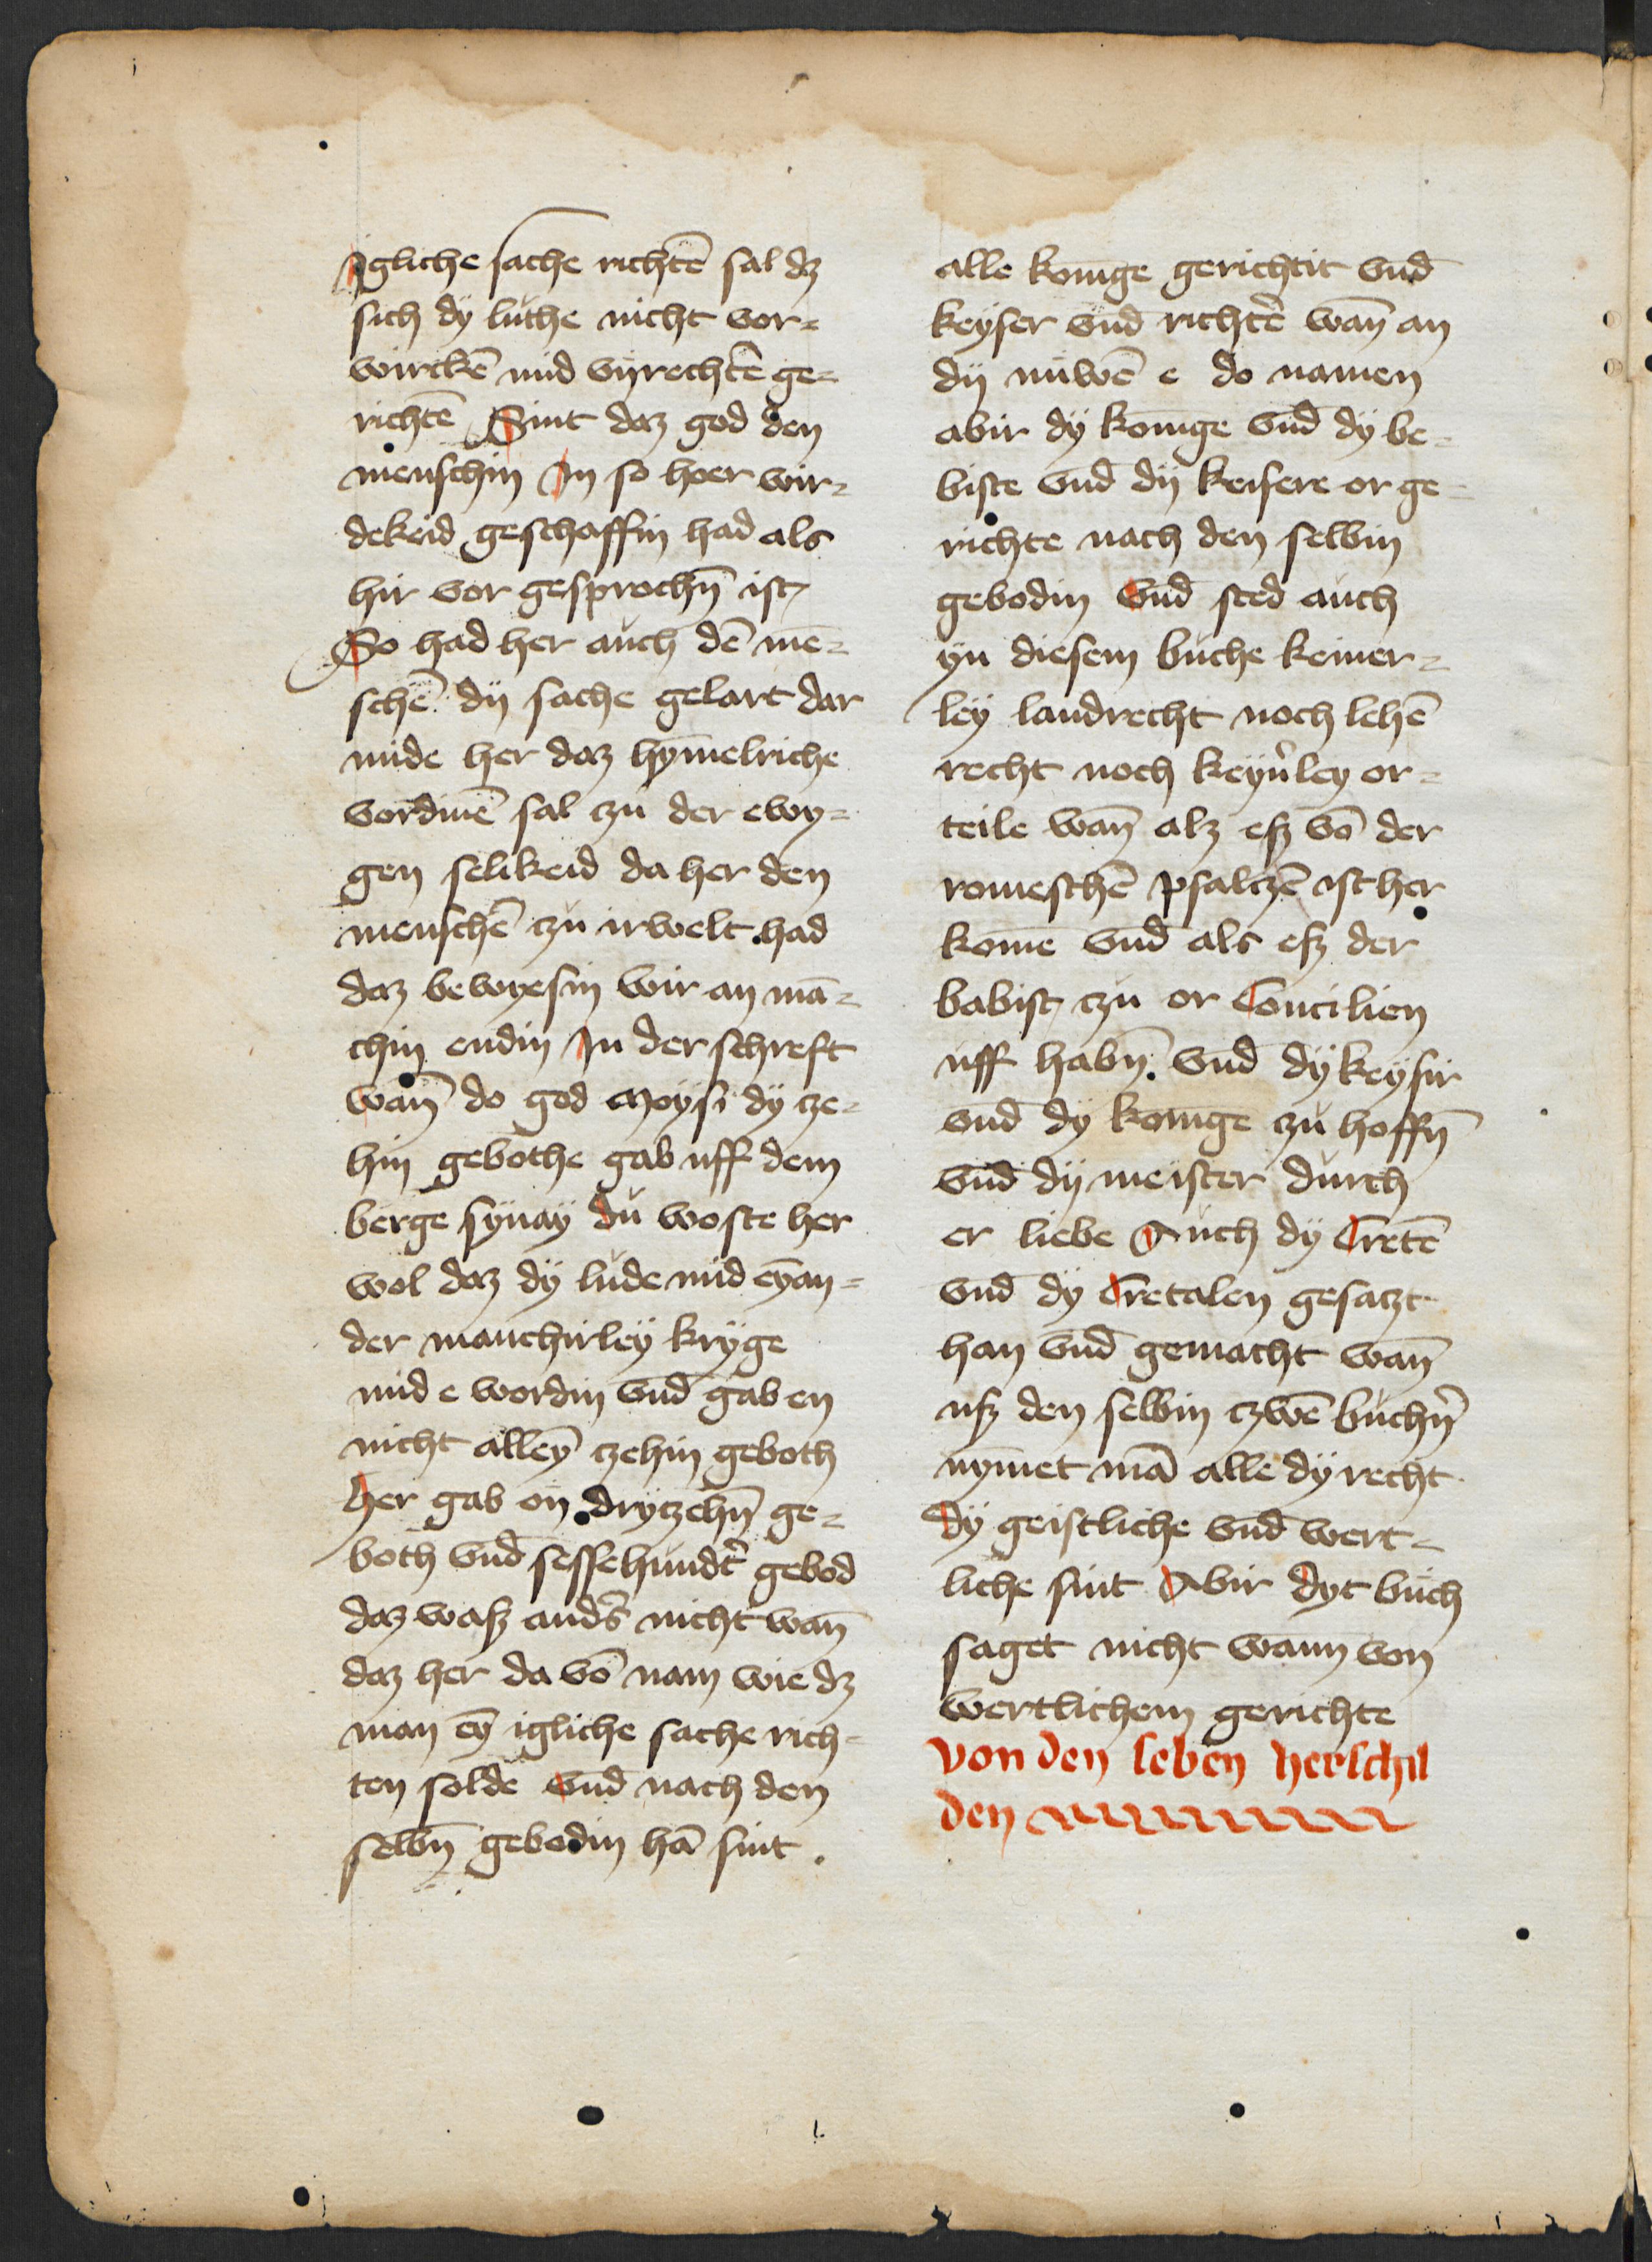 Igliche sache richtē sal dz
sich dy luthe nicht vor=
wirckē mid vnrechtē ge=
richtē Sint daz god den
menschin In so hoer wir=
dekeid geschaffin had als
hir vor gesprochn̄ ist
So had her auch dē mē=
schē dy sache gelart dar
mide her daz hȳmelriche
vordinē sal zu der ewy=
gen selikeid da her den
menschē zu irwelt had
daz bewyesin wir an mā=
chin endin In der schreft
wan̄ do god Moysi dy tze=
hin gebothe gab uff dem
berge synay du woste her
wol daz dy lude mid eyan=
der manchirley kryge
mid e wordin vnd̄ gab en
nicht alley̅ czehin geboth
her gab on drytzehn̄ ge=
both vnd̄ sessehundt̉ gebod
daz wasz and̉s nicht wan̄
daz her da vō nam wie dz
man ey̅ igliche sache rich=
ten solde vnd̄ nach den
selbn̄ gebodin hā sint
alle konige gerichtit vnd̄
keyser vnd̄ richt̉e wan̄ an
dy nuwē e do namen
abir dy konige vnd̄ dy be=
biste vnd̄ dy keisere or ge=
richte nach den selbin
gebodin vnd̄ sted auch
yn diesem buche keiner=
ley landrecht noch lehē
recht noch keyn̉ley or=
teile wan̄ alz esz vō der
romeschē psalczē ist her
komē vnd̄ als esz der
babist czu or Concilien
uff habn̄ vnd̄ dy keysir
vnd̄ dy konige zu hoffn̄
vnd̄ dy meister durch
er liebe Auch dy Cretē
vnd̄ dy Cretalen gesaczt
han vnd̄ gemacht wan̄
usz den selbin czwē buchn̉
nȳmet mā alle dy recht
dy geistliche vnd̄ wert=
liche sint Abir dyt buch
saget nicht wann von
wertlichem gerichte
von den leben herschil
den